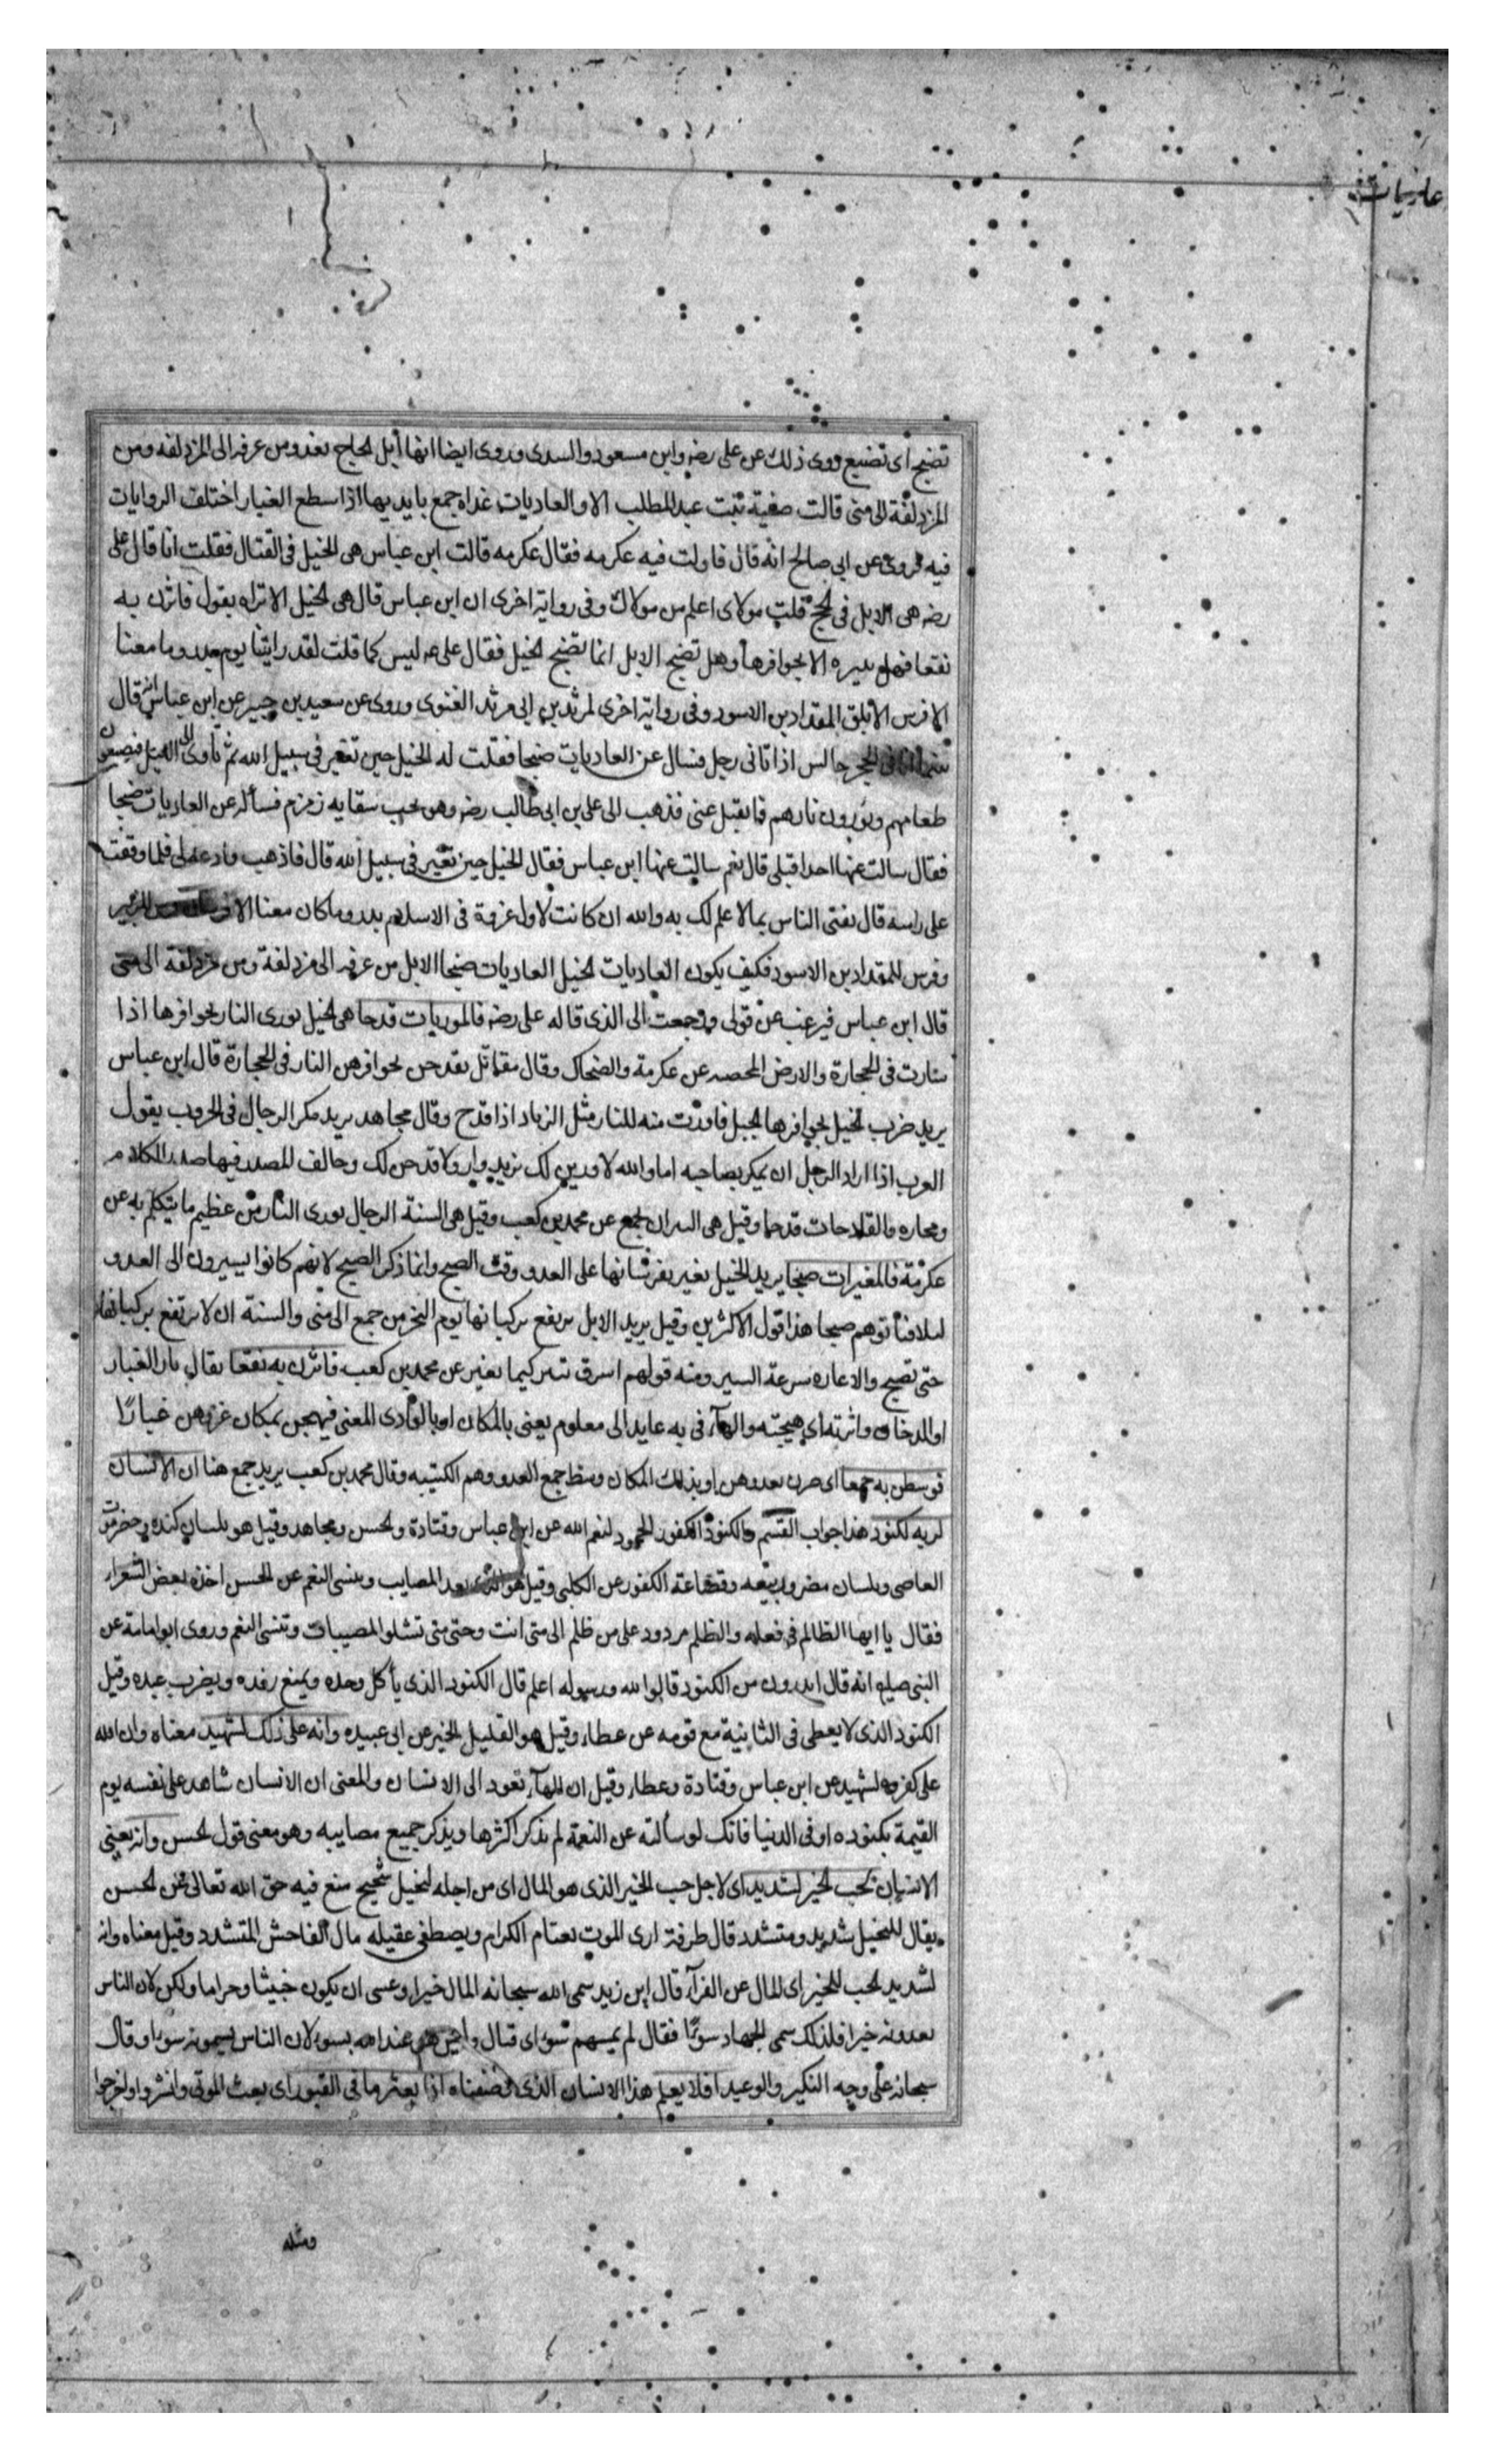 عاديات
تضبح اى تضبع روى ذلك عن على رضه وابن مسعود والسدى وروى ايضا انها أبل الحاج تعدو من عرفه الى المزدلفه ومن
المزدلفة الى منى قالت صفية بنت عبدالمطلب الا والعاديات غداه جمع بايديها اذا سطع الغبار اختلف الروايات
فيه فروى عن ابى صالح انه قال قاولت فيه عكرمه فقال عكرمه قالت ابن عباس هى الخيل فى القتال فقلت انا قال على
رضه هى الابل فى الحج قلت مولاى اعلم من مولاك وفى رواية اخرى ان ابن عباس قال هى الخيل الا تراه يقول فاثرن به
نقعا فهل يثيره الا بحوافرها وهل تضبح الابل انما تضبح الخيل فقال على عه ليس كما قلت لقد رايتنا يوم بدر وما معنا
الا فرس الأبلق المقداد بن الاسود وفى رواية اخرى لمرثد بن ابى مرثد الغنوى وروى عن سعيد بن جبير عن ابن عباس انه قال
بينما انا فى الحجر جالس اذ اتانى رجل فسال عن العاديات ضبحا فقلت له الخيل حين تغير فى سبيل الله ثم تأوى الى الليل فيصنعون
طعامهم ويورون نارهم فانفتل عنى فذهب الى على بن ابى طالب رضه وهو تحت سقايه زمزم فسأله عن العاديات ضبحا
فقال سالت عنها احدا قبلى قال نعم سالت عنها ابن عباس فقال الخيل حين تغير فى سبيل الله قال فاذهب فادعه لى فلما وقفت
على راسه قال تفتى الناس بما لا علم لك به والله ان كانت لاول غزوة فى الاسلام بدر وما كان معنا الا فرسان للزبير
وفرس للمقداد بن الاسود فكيف يكون العاديات الخيل العاديات ضبحا الابل من عرفه الى مزدلفة ومن مزدلفة الى منى
قال ابن عباس فرغبت عن قولى ورجعت الى الذى قاله على رضه فالموريات قدحا هى الخيل تورى النار بحوافرها اذا
سارت فى الحجارة والارض المحصبه عن عكرمة والضحاك وقال مقاتل يقدحن بحوافرهن النار فى الحجارة قال ابن عباس
يريد ضرب الخيل بحوافرها الجبل فاورت منه للنار مثل الزناد اذا قدح وقال مجاهد يريد مكر الرجال فى الحروب يقول
العرب اذا اراد الرجل ان يمكر بصاحبه اما والله لاورين لك بزند وار ولاقدحن لك وخالف المصدر فيها صدر الكلام
ومجازه فالقادحات قدحا وقيل هى النيران بجمع عن محمد بن كعب وقيل هى السنة الرجال تورى النار من عظيم ما يتكلم به عن
عكرمة فالمغيرات صبحا يريد الخيل تغير بفرسانها على العدو وقت الصبح وانما ذكر الصبح لانهم كانوا يسيرون الى العدو
ليلا فيأتوهم صبحا هذا قول الاكثرين وقيل يريد الابل ترتفع بركبانها يوم النحر من جمع الى منى والسنة ان لا يرتفع بركبانها
حتى تصبح والاغاره سرعة السير ومنه قولهم اشرق ثبير كيما نغير عن محمد بن كعب فاثرن به نقعا يقال ثار الغبار
او الدخان واثرته اى هيجته والهآء فى به عايد الى معلوم يعنى بالمكان او بالوادى المعنى فيهجن بمكان غزوهن غبارًا
فوسطن به جمعا اى صرن بعدوهن او بذلك المكان وسط جمع العدو وهم الكتيبه وقال محمد بن كعب يريد جمع هنا ان الانسان
لربه لكنود هذا جواب القسم والكنود الكفور الجحود لنعم الله عن ابن عباس وقتادة والحسن ومجاهد وقيل هو بلسان كنده وحضرموت
العاصى وبلسان مضر وربيعه وقضاعة الكفور عن الكلبى وقيل هو الذى يعد المصايب وينسى النعم عن الحسن اخذه بعض الشعراء
فقال يا ايها الظالم فى فعله والظلم مردود على من ظلم الى متى انت وحتى متى تشكو المصيبات وتنسى النعم وروى ابوامامة عن
النبى صلعم انه قال اتدرون من الكنود قالوا الله ورسوله اعلم قال الكنود الذى يأكل وحده ويمنع رفده ويضرب عبده وقيل
الكنود الذى لا يعطى فى النائبة مع قومه عن عطاء وقيل هو القليل الخير عن ابى عبيده وانه على ذلك لشهيد معناه وان الله
على كفره لشهيد عن ابن عباس وقتادة وعطاء وقيل ان الهآء تعود الى الانسان والمعنى ان الانسان شاهد على نفسه يوم
القيمة بكنوده او فى الدنيا فانك لو سألته عن النعمة لم يذكر اكثرها ويذكر جميع مصايبه وهو معنى قول الحسن وانه يعنى
الانسان لحب الخير لشديد اى لاجل حب الخير الذى هو المال اى من اجله لبخيل شحيح منع فيه حق الله تعالى عن الحسن
يقال للبخيل شديد ومتشدد قال طرفة ارى الموت يعتام الكرام ويصطفى عقيله مال الفاحش المتشدد وقيل معناه وانه
لشديد الحب للخير اى المال عن الفرآء قال ابن زيد سمى الله سبحانه المال خيرا وعسى ان يكون خبيثا وحراما ولكن لان الناس
يعدونه خيرا فلذلك سمى الجهاد سوءًا فقال لم يمسهم سوء اى قتال وليس هو عند الله بسوء لان الناس يسمونه سوءا وقال
سبحانه على وجه التكير والوعيد افلا يعلم هذا الانسان الذى وصفناه اذا بعثر ما فى القبور اى بعث الموتى وانشروا واخرجوا
ومثله